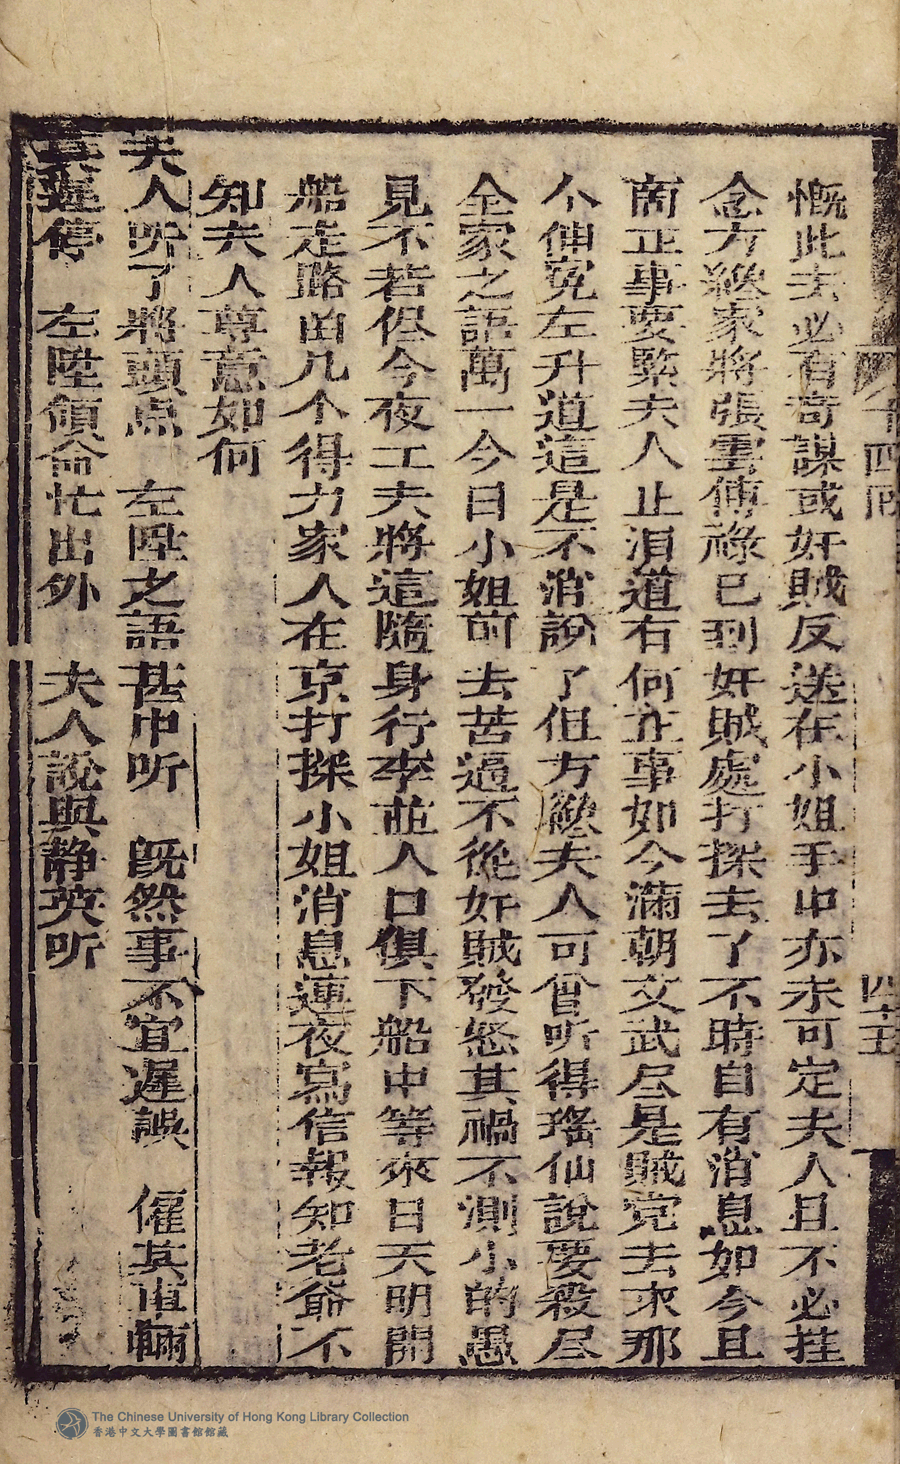 十四回
四十五
慨此去必有奇謀或奸賊反送在小姐手中亦未可定夫人且不必挂
念方纔家將張雲傅祿已到奸賊處打探去了不時自有消息如今且
啇正事要緊夫人止泪道有何正事如今滿朝文武尽是賊党去求那
个伸冤左升道這是不消說了但方纔夫人可曾听得瑤仙說要殺尽
全家之語萬一今日小姐前去苦逼不從奸賊發怒其禍不測小的愚
見不若侭今夜工夫將這隨身行李並人口俱下船中等來日天明開
船走路由几个得力家人在京打探小姐消息連夜寫信報知老爺不
知夫人尊意如何
夫人听了將頭点 左陞之語甚中听 既然事不宜遲誤 僱其車輛
莫遲停 左陞領命忙出外 夫人說與静英听
The Chinese University of Hong Kong Library Collection
香港中文大學圖書館館藏